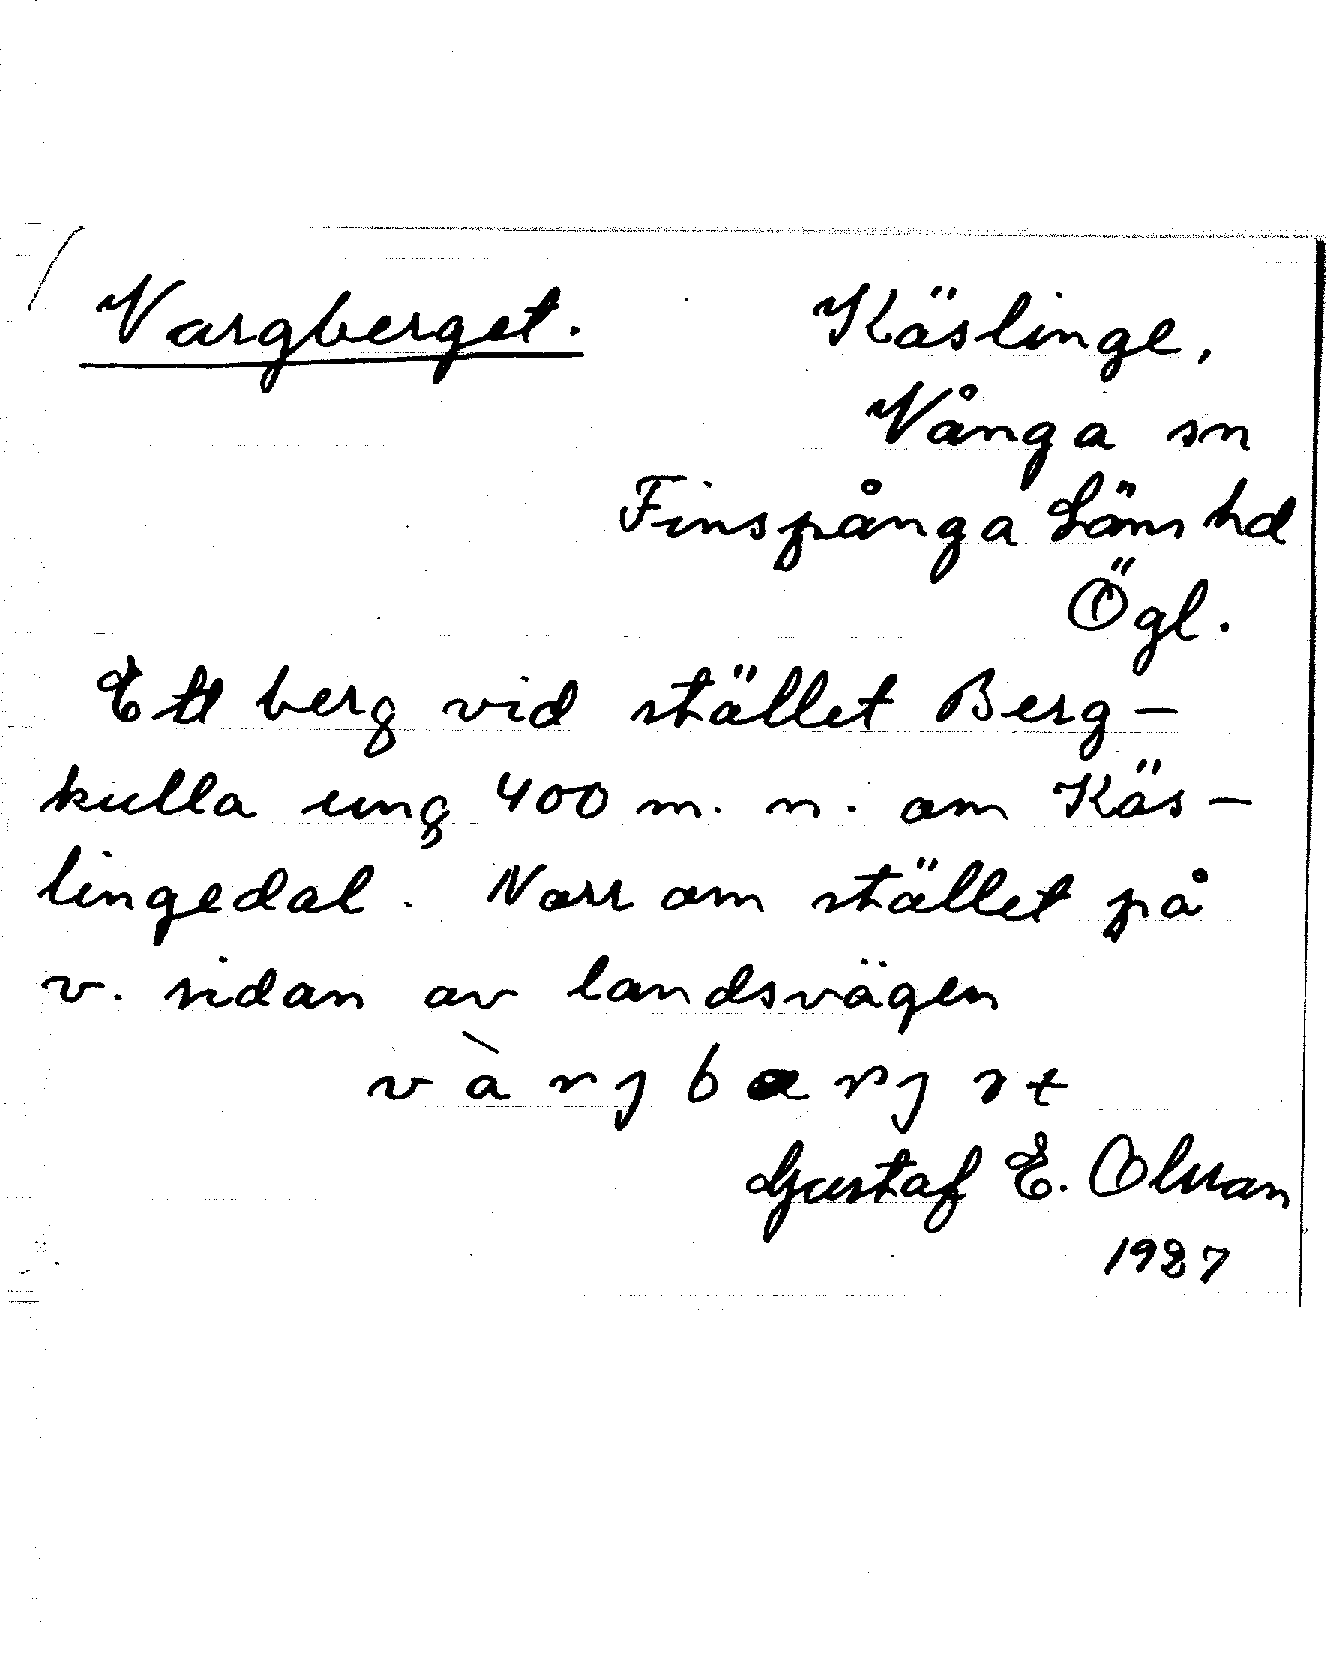 Vargberget. Käslinge,
Vånga sn
Finspånga Läns hd
Ögl.
Ett berg vid stället Berg-
kulla ung 400 m. n. om Käs-
lingedal. Norr om stället på
v. sidan av landsvägen
Gustaf E. Olsson
1927